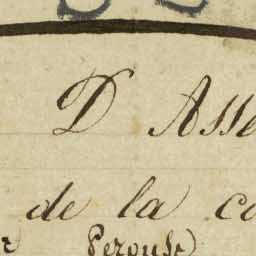 D Asse
de la co
Perouse